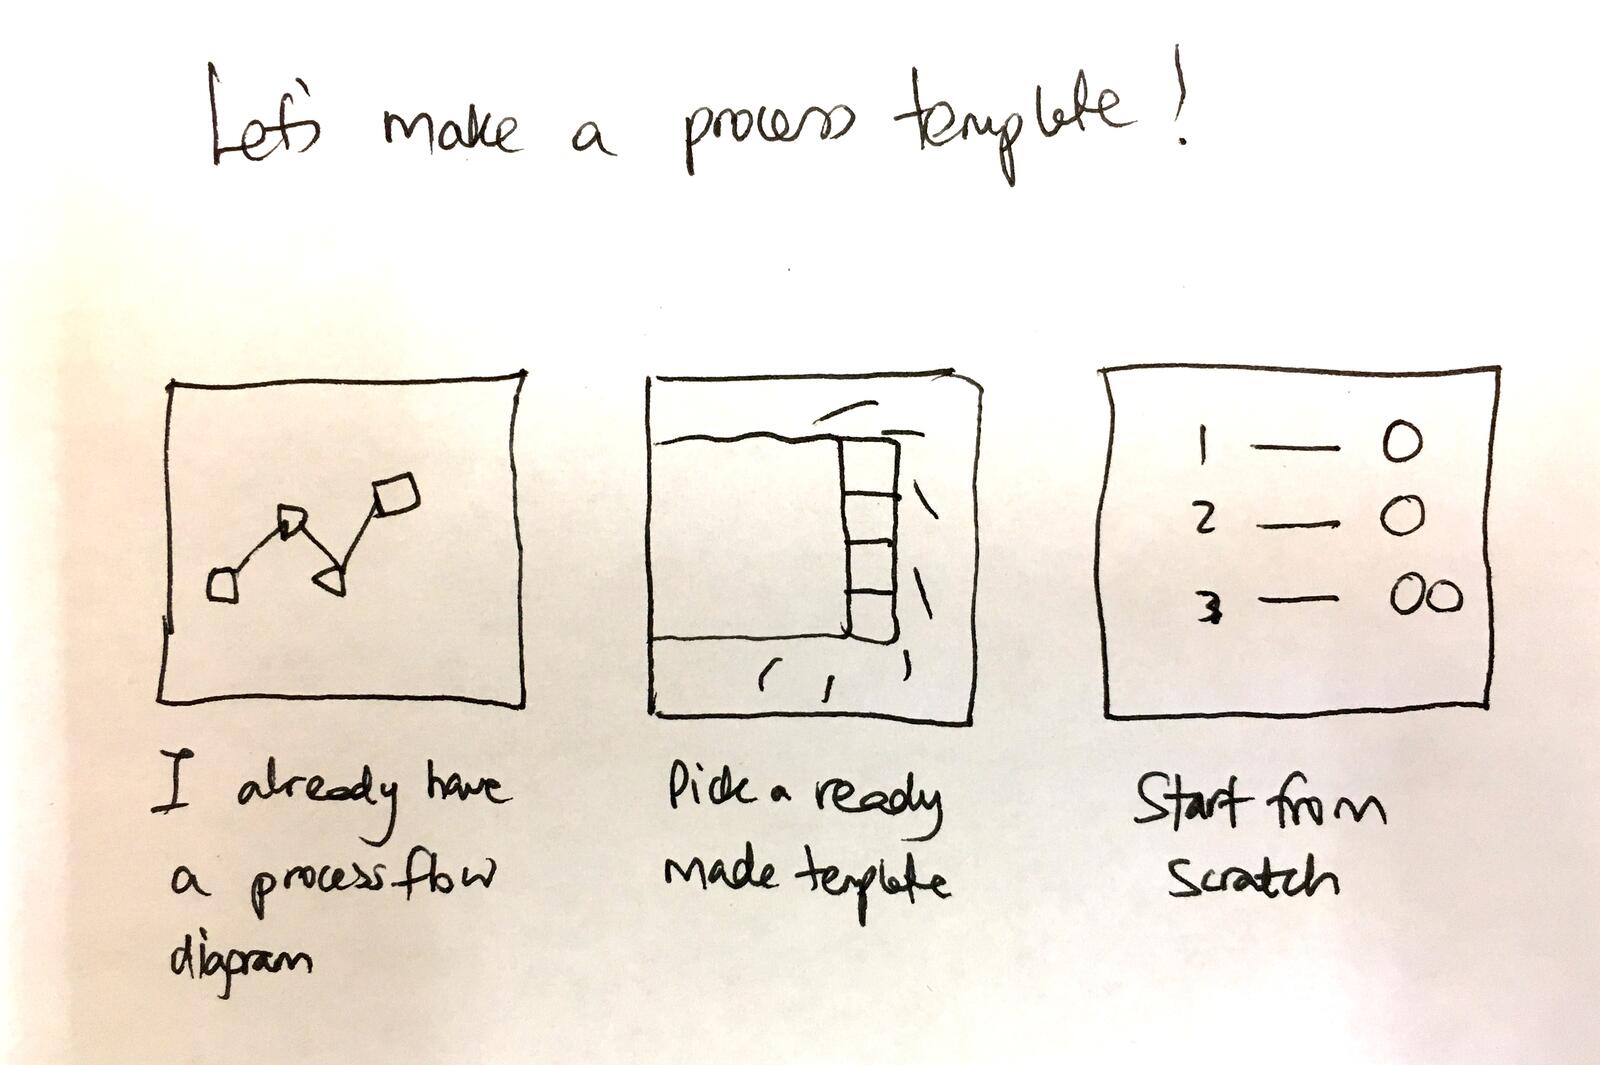 Let's make a process template!
1 — O
2 — O
3 — OO
I already have
a process flow
diagram
Pick a ready
made template
Start from
Scratch